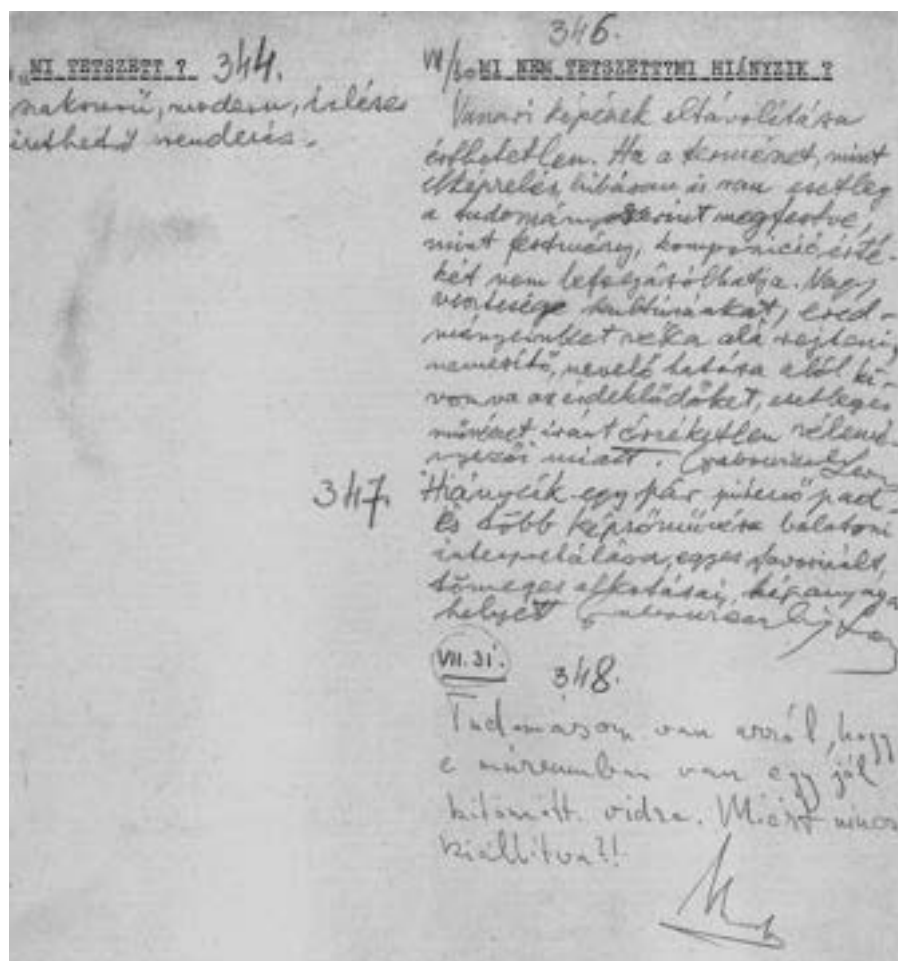 MI TETSZETT ? 344.
modern, ízléses
érthető rendezés.
346.
VII/30 MI NEM TETSZETT? MI HIÁNYZIK ?
Vanari képének eltávolítása
érthetetlen. Ha a természet, mint
elképzelés, hibásan is van esetleg
a tudomány szerint megfestve,
mint festmény, kompozíció érté-
két nem befolyásolhatja. Nagy
vesztesége kultúránknak, ered-
ményeinket véka alá rejteni,
nemesítő, nevelő hatása alól ki-
vonva az érdeklődőket, esetleges
művészet iránt érzéketlen vélemé-
nyezői miatt.
347. Hiányzik egy pár pihenő pad
és több képzőművész balatoni
interpretálása, egyes favorizált,
tömeges alkotásai, képanyaga
helyett
VII. 31. 348.
Tudomásom van arról, hogy
e múzeumban van egy jól
kitömött vidra. Miért nincs
kiállítva?!